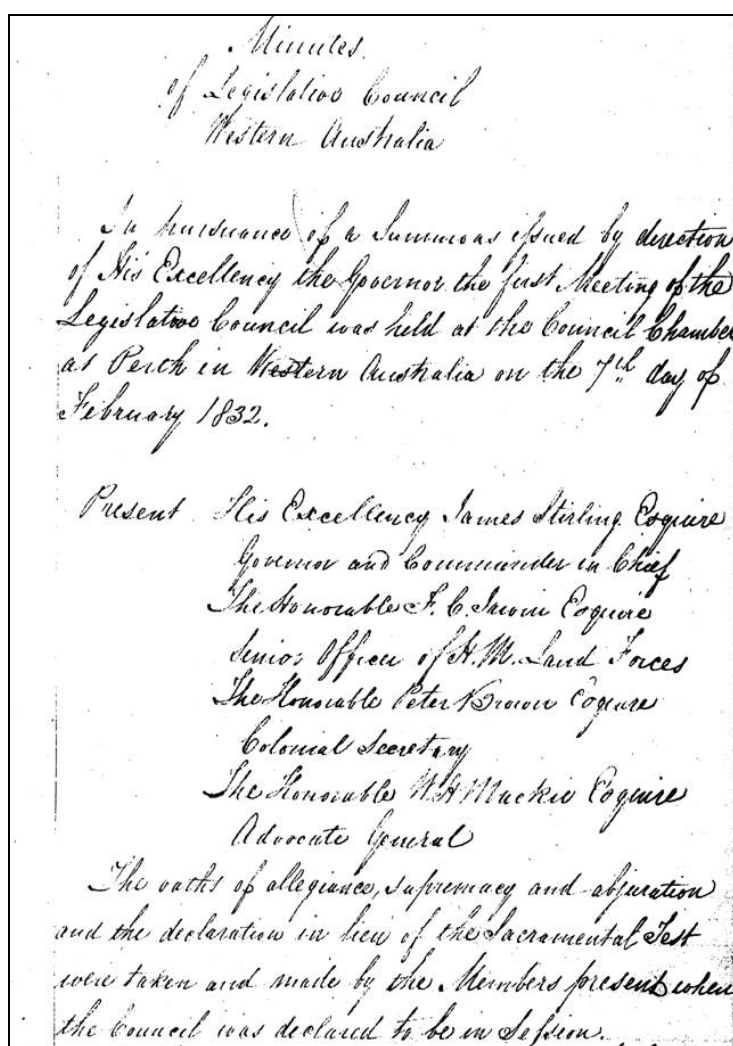 Minutes
of Legislative Council
Western Australia
In pursuance of a Summons issued by direction
of His Excellency the Governor the first Meeting of the
Legislative Council was held at the Council Chamber
at Perth in Western Australia on the 7th day of
February 1832.
Present His Excellency James Stirling Esquire
Governor and Commander in Chief
The Honorable F. C. Irwin Esquire
Senior Officer of H.M. Land Forces
The Honorable Peter Brown Esquire
Colonial Secretary
The Honorable W H Mackie Esquire
Advocate General
The oaths of allegiance, supremacy and abjuration
and the declaration in lieu of the Sacramental Test
were taken and made by the Members present when
the Council was declared to be in Session.